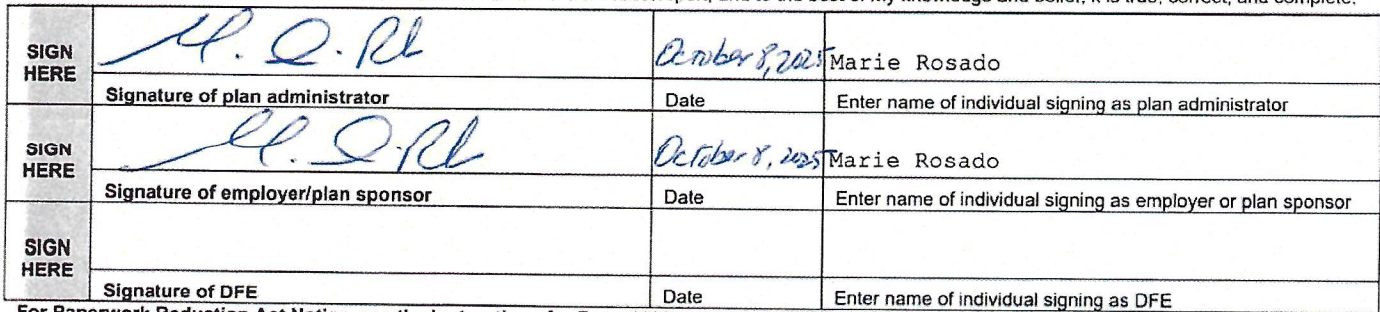 knowledge and belief, it is true, correct, and complete.
SIGN HERE
October 8, 2025 Marie Rosado
Signature of plan administrator Date Enter name of individual signing as plan administrator
SIGN HERE
October 8, 2025 Marie Rosado
Signature of employer/plan sponsor Date Enter name of individual signing as employer or plan sponsor
SIGN HERE
Signature of DFE Date Enter name of individual signing as DFE
For Paperwork Reduction Act